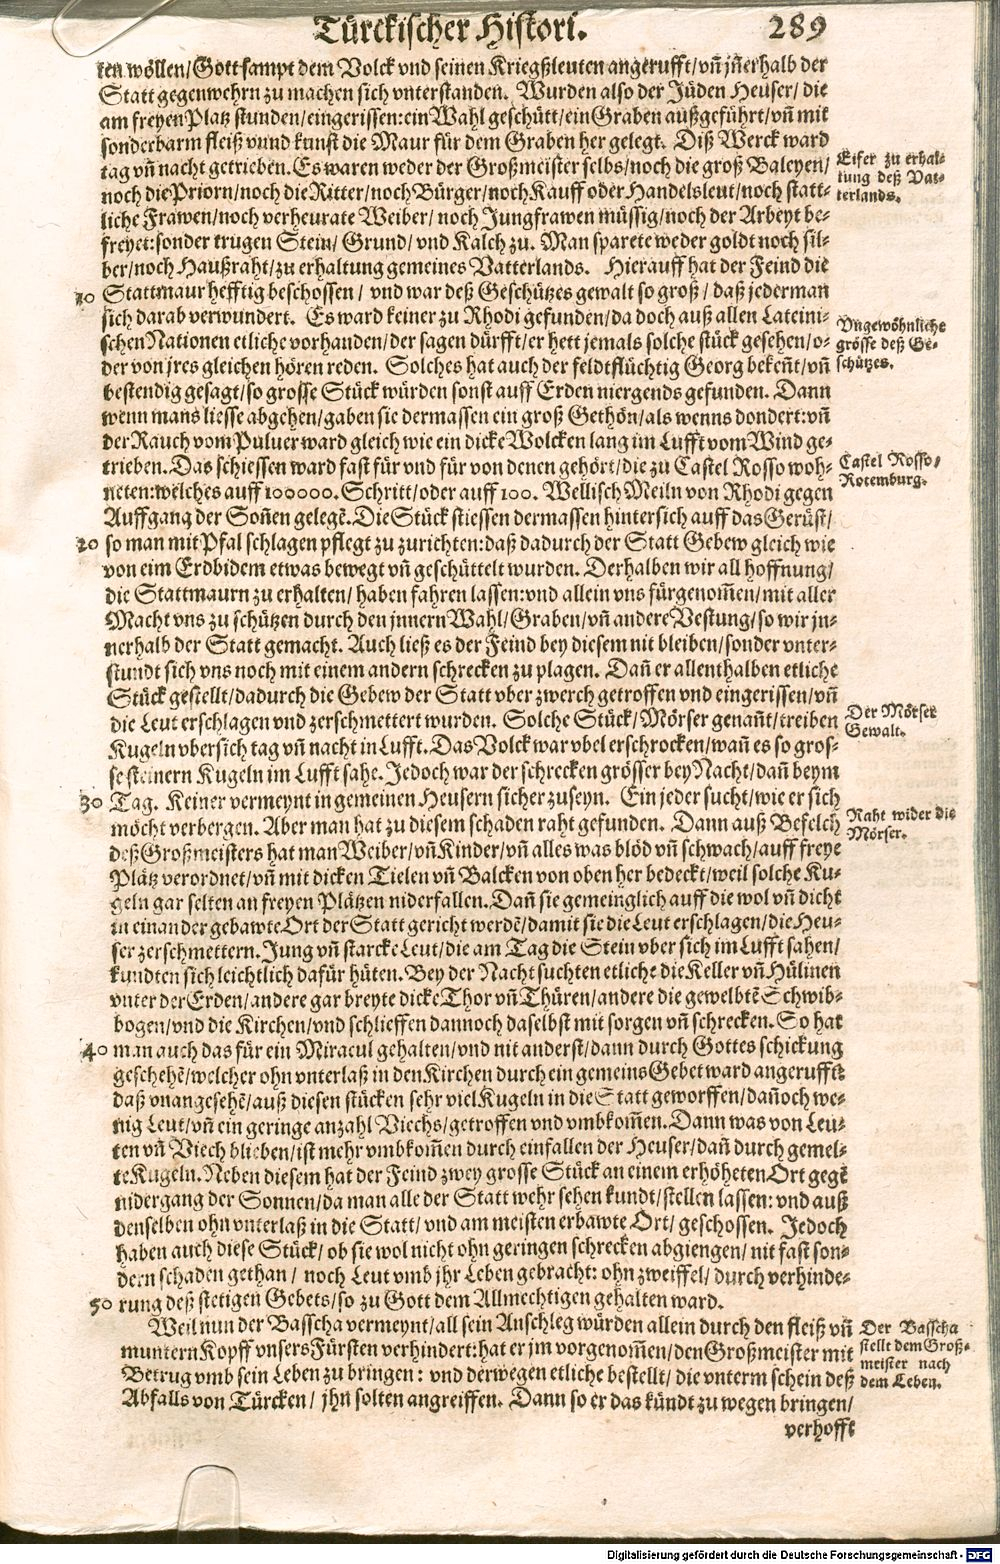 Türckischer Histori. 289
ten wöllen/Gott sampt dem Volck vnd seinen Kriegßleuten angerufft/vñ jñerhalb der
Statt gegenwehrn zu machen sich vnterstanden. Wurden also der Jüden Heuser/ die
am freyen Platz stunden/eingerissen:ein Wahl geschütt/ein Graben außgeführt/vñ mit
sonderbarm fleiß vnnd kunst die Maur für dem Graben her gelegt. Diß Werck ward
tag vñ nacht getrieben. Es waren weder der Großmeister selbs/noch die groß Baleyen/
Eifer zu erhal-
tung deß Vat-
terlands.
noch die Priorn/noch die Ritter/noch Bürger/noch Kauff oder Handelsleut/noch statt-
liche Frawen/noch verheurate Weiber/ noch Jungfrawen müssig/noch der Arbeyt be-
freyet:sonder trugen Stein/ Grund/ vnd Kalch zu. Man sparete weder goldt noch sil-
ber/noch Haußraht/zu erhaltung gemeines Vatterlands. Hierauff hat der Feind die
10 Stattmaur hefftig beschossen/ vnd war deß Geschützes gewalt so groß/ daß jederman
sich darab verwundert. Es ward keiner zu Rhodi gefunden/da doch auß allen Lateini-
Vngewöhnliche
grösse deß Ge-
schützes.
schen Nationen etliche vorhanden/der sagen dürfft/er hett jemals solche stück gesehen/o-
der von jres gleichen hören reden. Solches hat auch der feldtflüchtig Georg bekeñt/vñ
bestendig gesagt/so grosse Stück würden sonst auff Erden niergends gefunden. Dann
wenn mans liesse abgehen/gaben sie dermassen ein groß Gethön/als wenns dondert:vñ
der Rauch vom Puluer ward gleich wie ein dicke Wolcken lang im Lufft vom Wind ge-
trieben. Das schiessen ward fast für vnd für von denen gehört/die zu Castel Rosso woh-
Castel Rosso/
Rotemburg.
neten:welches auff 100000. Schritt/oder auff 100. Wellisch Meiln von Rhodi gegen
Auffgang der Soñen gelegẽ. Die Stück stiessen dermassen hintersich auff das Gerüst/
20 so man mit Pfal schlagen pflegt zu zurichten:daß dadurch der Statt Gebew gleich wie
von eim Erdbidem etwas bewegt vñ geschüttelt wurden. Derhalben wir all hoffnung/
die Stattmaurn zu erhalten/ haben fahren lassen:vnd allein vns fürgenom̃en/mit aller
Macht vns zu schützen durch den innern Wahl/Graben/vñ andere Vestung/so wir jn-
nerhalb der Statt gemacht. Auch ließ es der Feind bey diesem nit bleiben/sonder vnter-
stundt sich vns noch mit einem andern schrecken zu plagen. Dañ er allenthalben etliche
Stück gestellt/dadurch die Gebew der Statt vber zwerch getroffen vnd eingerissen/vñ
die Leut erschlagen vnd zerschmettert wurden. Solche Stück/Mörser genañt/treiben
Der Mörser
Gewalt.
Kugeln vbersich tag vñ nacht in Lufft. Das Volck war vbel erschrocken/wañ es so gros-
se steinern Kugeln im Lufft sahe. Jedoch war der schrecken grösser bey Nacht/dañ beym
30 Tag. Keiner vermeynt in gemeinen Heusern sicher zuseyn. Ein jeder sucht/wie er sich
möcht verbergen. Aber man hat zu diesem schaden raht gefunden. Dann auß Befelch
Raht wider die
Mörser.
deß Großmeisters hat man Weiber/vñ Kinder/vñ alles was blöd vñ schwach/auff freye
Plätz verordnet/vñ mit dicken Tielen vñ Balcken von oben her bedeckt/weil solche Ku-
geln gar selten an freyen Plätzen niderfallen. Dañ sie gemeinglich auff die wol vñ dicht
in einander gebawte Ort der Statt gericht werdẽ/damit sie die Leut erschlagen/die Heu-
ser zerschmettern. Jung vñ starcke Leut/die am Tag die Stein vber sich im Lufft sahen/
kundten sich leichtlich dafür hüten. Bey der Nacht suchten etliche die Keller vñ Hülinen
vnter der Erden/andere gar breyte dicke Thor vñ Thüren/andere die gewelbtẽ Schwib-
bogen/vnd die Kirchen/vnd schlieffen dannoch daselbst mit sorgen vñ schrecken. So hat
40 man auch das für ein Miracul gehalten/vnd nit anderst/dann durch Gottes schickung
geschehẽ/welcher ohn vnterlaß in den Kirchen durch ein gemeins Gebet ward angerufft:
daß vnangesehẽ/auß diesen stücken sehr viel Kugeln in die Statt geworffen/dañoch we-
nig Leut/vñ ein geringe anzahl Viechs/getroffen vnd vmbkom̃en. Dann was von Leu-
ten vñ Viech blieben/ist mehr vmbkom̃en durch einfallen der Heuser/dañ durch gemel-
te Kugeln. Neben diesem hat der Feind zwey grosse Stück an einem erhöheten Ort gegẽ
nidergang der Sonnen/da man alle der Statt wehr sehen kundt/stellen lassen: vnd auß
denselben ohn vnterlaß in die Statt/ vnd am meisten erbawte Ort/ geschossen. Jedoch
haben auch diese Stück/ ob sie wol nicht ohn geringen schrecken abgiengen/ nit fast son-
dern schaden gethan/ noch Leut vmb jhr Leben gebracht: ohn zweiffel/ durch verhinde-
50 rung deß stetigen Gebets/so zu Gott dem Allmechtigen gehalten ward.
Weil nun der Basscha vermeynt/all sein Anschleg würden allein durch den fleiß vñ
Der Basscha
stellt dem Groß-
meister nach
dem Leben.
muntern Kopff vnsers Fürsten verhindert:hat er jm vorgenom̃en/den Großmeister mit
Betrug vmb sein Leben zu bringen: vnd derwegen etliche bestellt/ die vnterm schein deß
Abfalls von Türcken/ jhn solten angreiffen. Dann so er das kündt zu wegen bringen/
verhofft
Digitalisierung gefördert durch die Deutsche Forschungsgemeinschaft - DFG